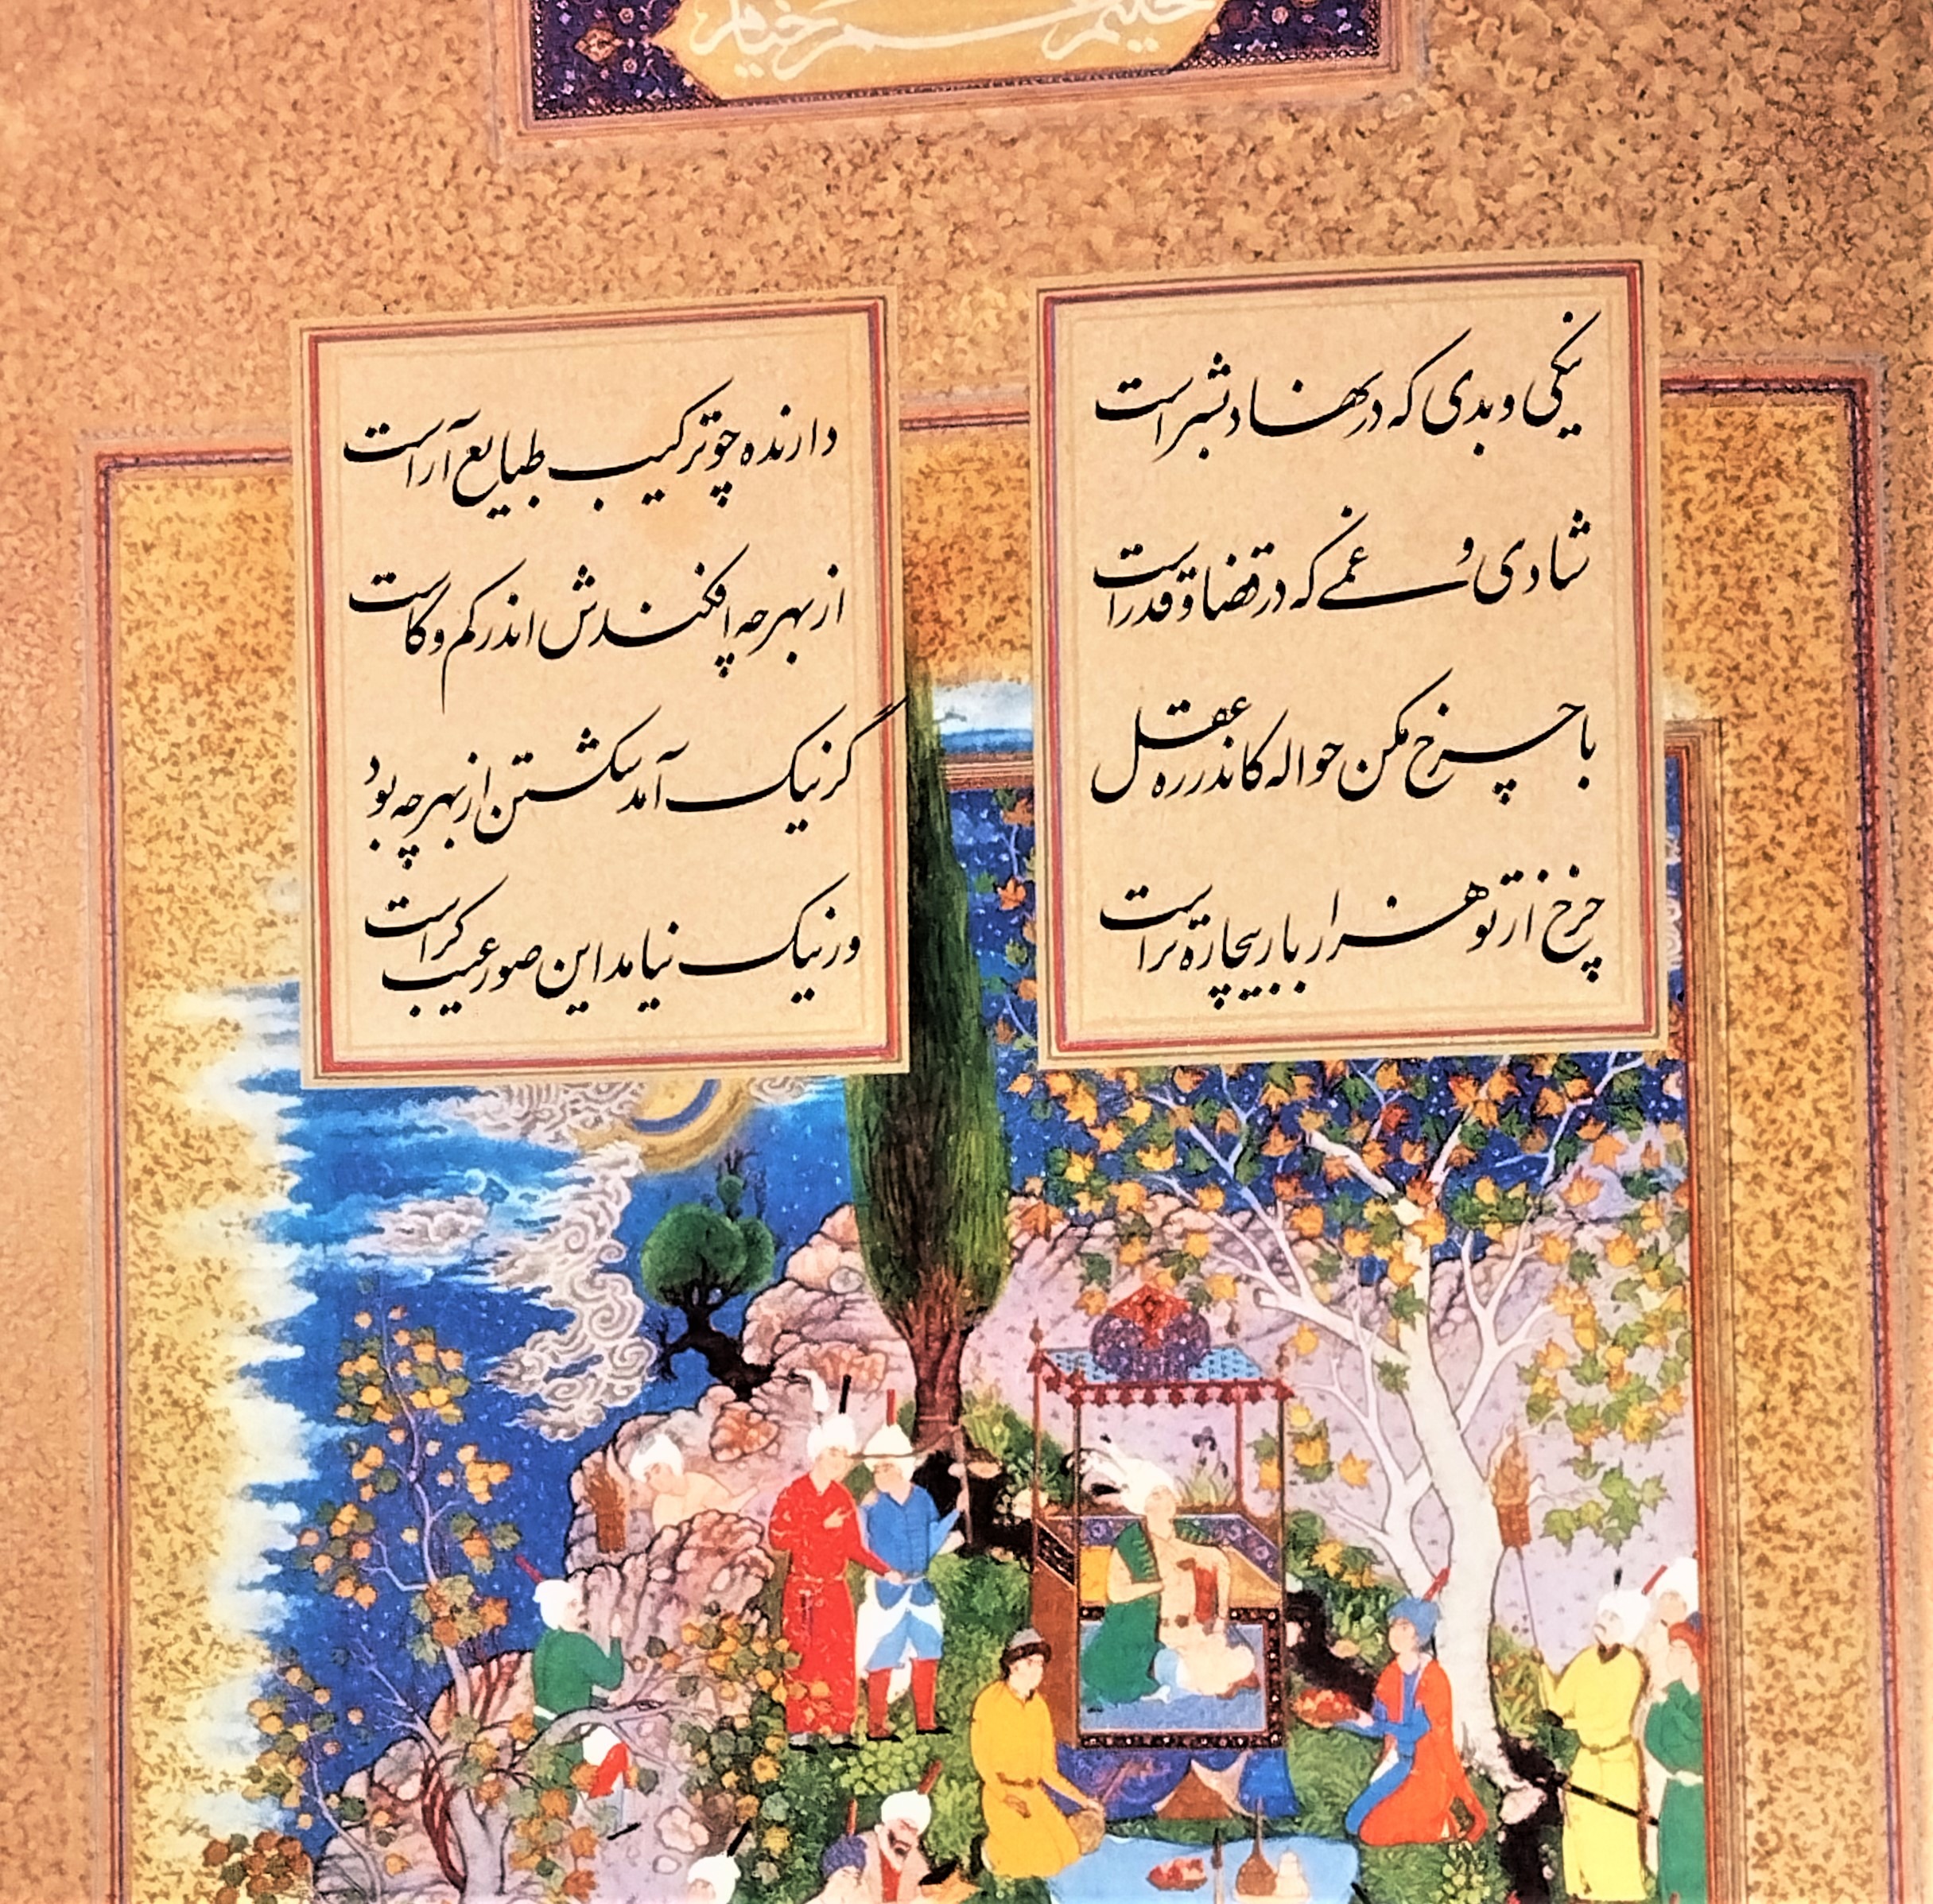 حکیم عمر خیام
نیکی و بدی که در نهاد بشر است
شادی و غمی که در قضا و قدر است
با چرخ مکن حواله کاندر ره عقل
چرخ از تو هزار بار بیچاره تر است
دارنده چو ترکیب طبایع آراست
از بهر چه افکندش اندر کم و کاست
گر نیک آمد شکستن از بهر چه بود
ور نیک نیامد این صور عیب کراست